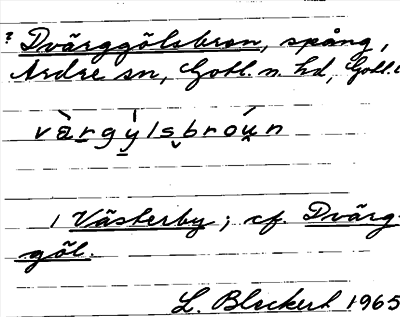 ? Dvärggölsbron, spång,
Ardre sn, Gotl. n. hd, Gotl.
vàrgýlsbroún
i Västerby; cf. Dvärg-
göl.
L. Bleckert 1965